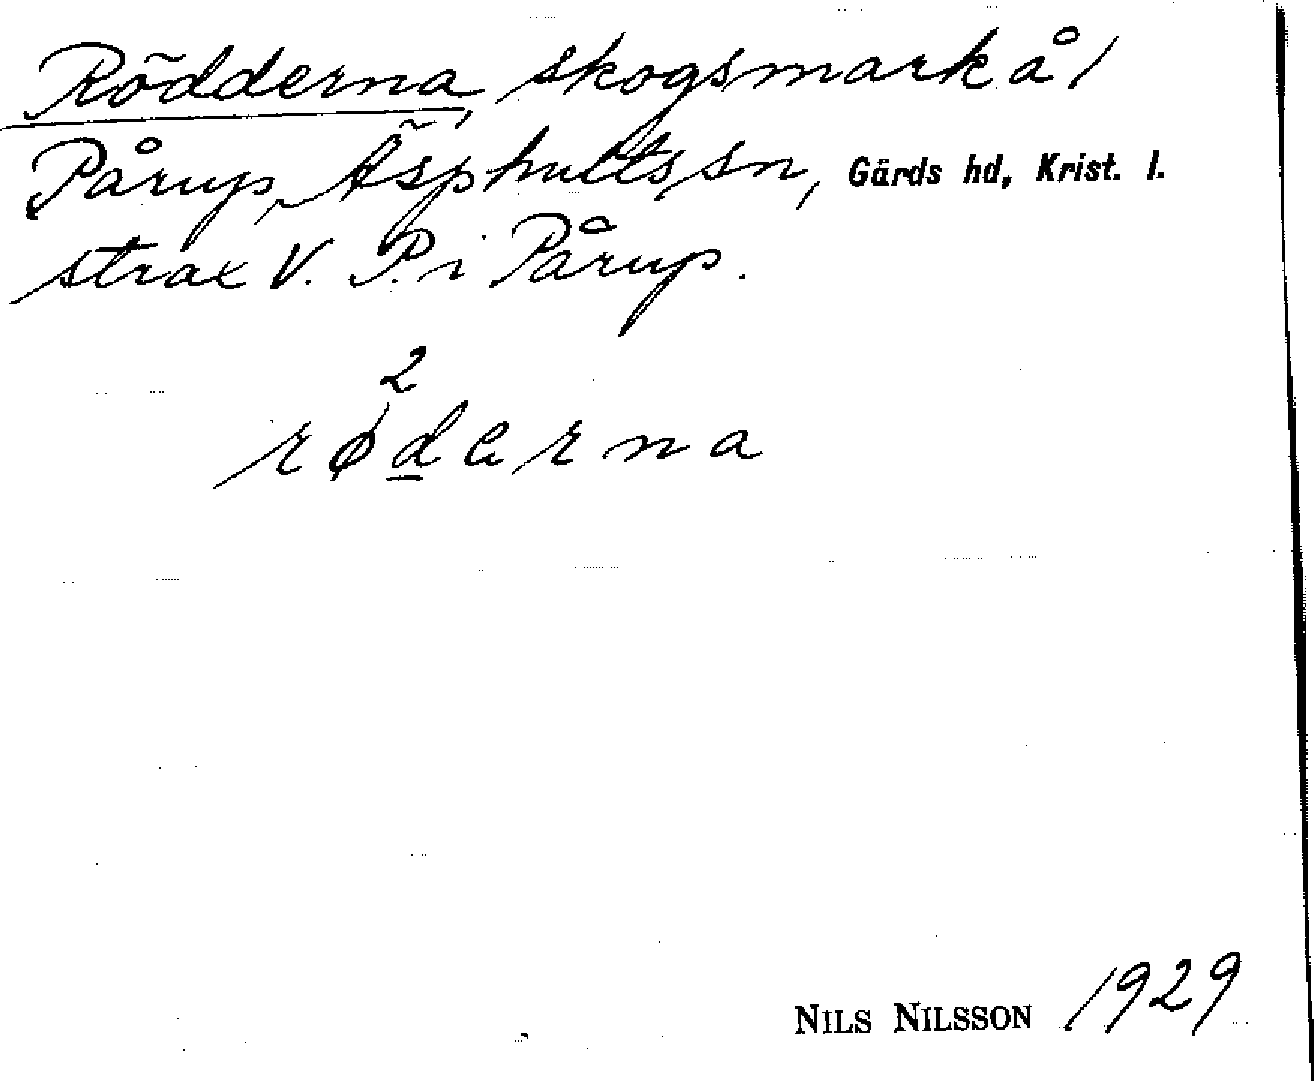 Rödderna, skogsmark å 1
Pårup, Äsphults sn, Gärds hd, Krist. l.
strax V. P. i Pårup.
2
røderna
NILS NILSSON 1929